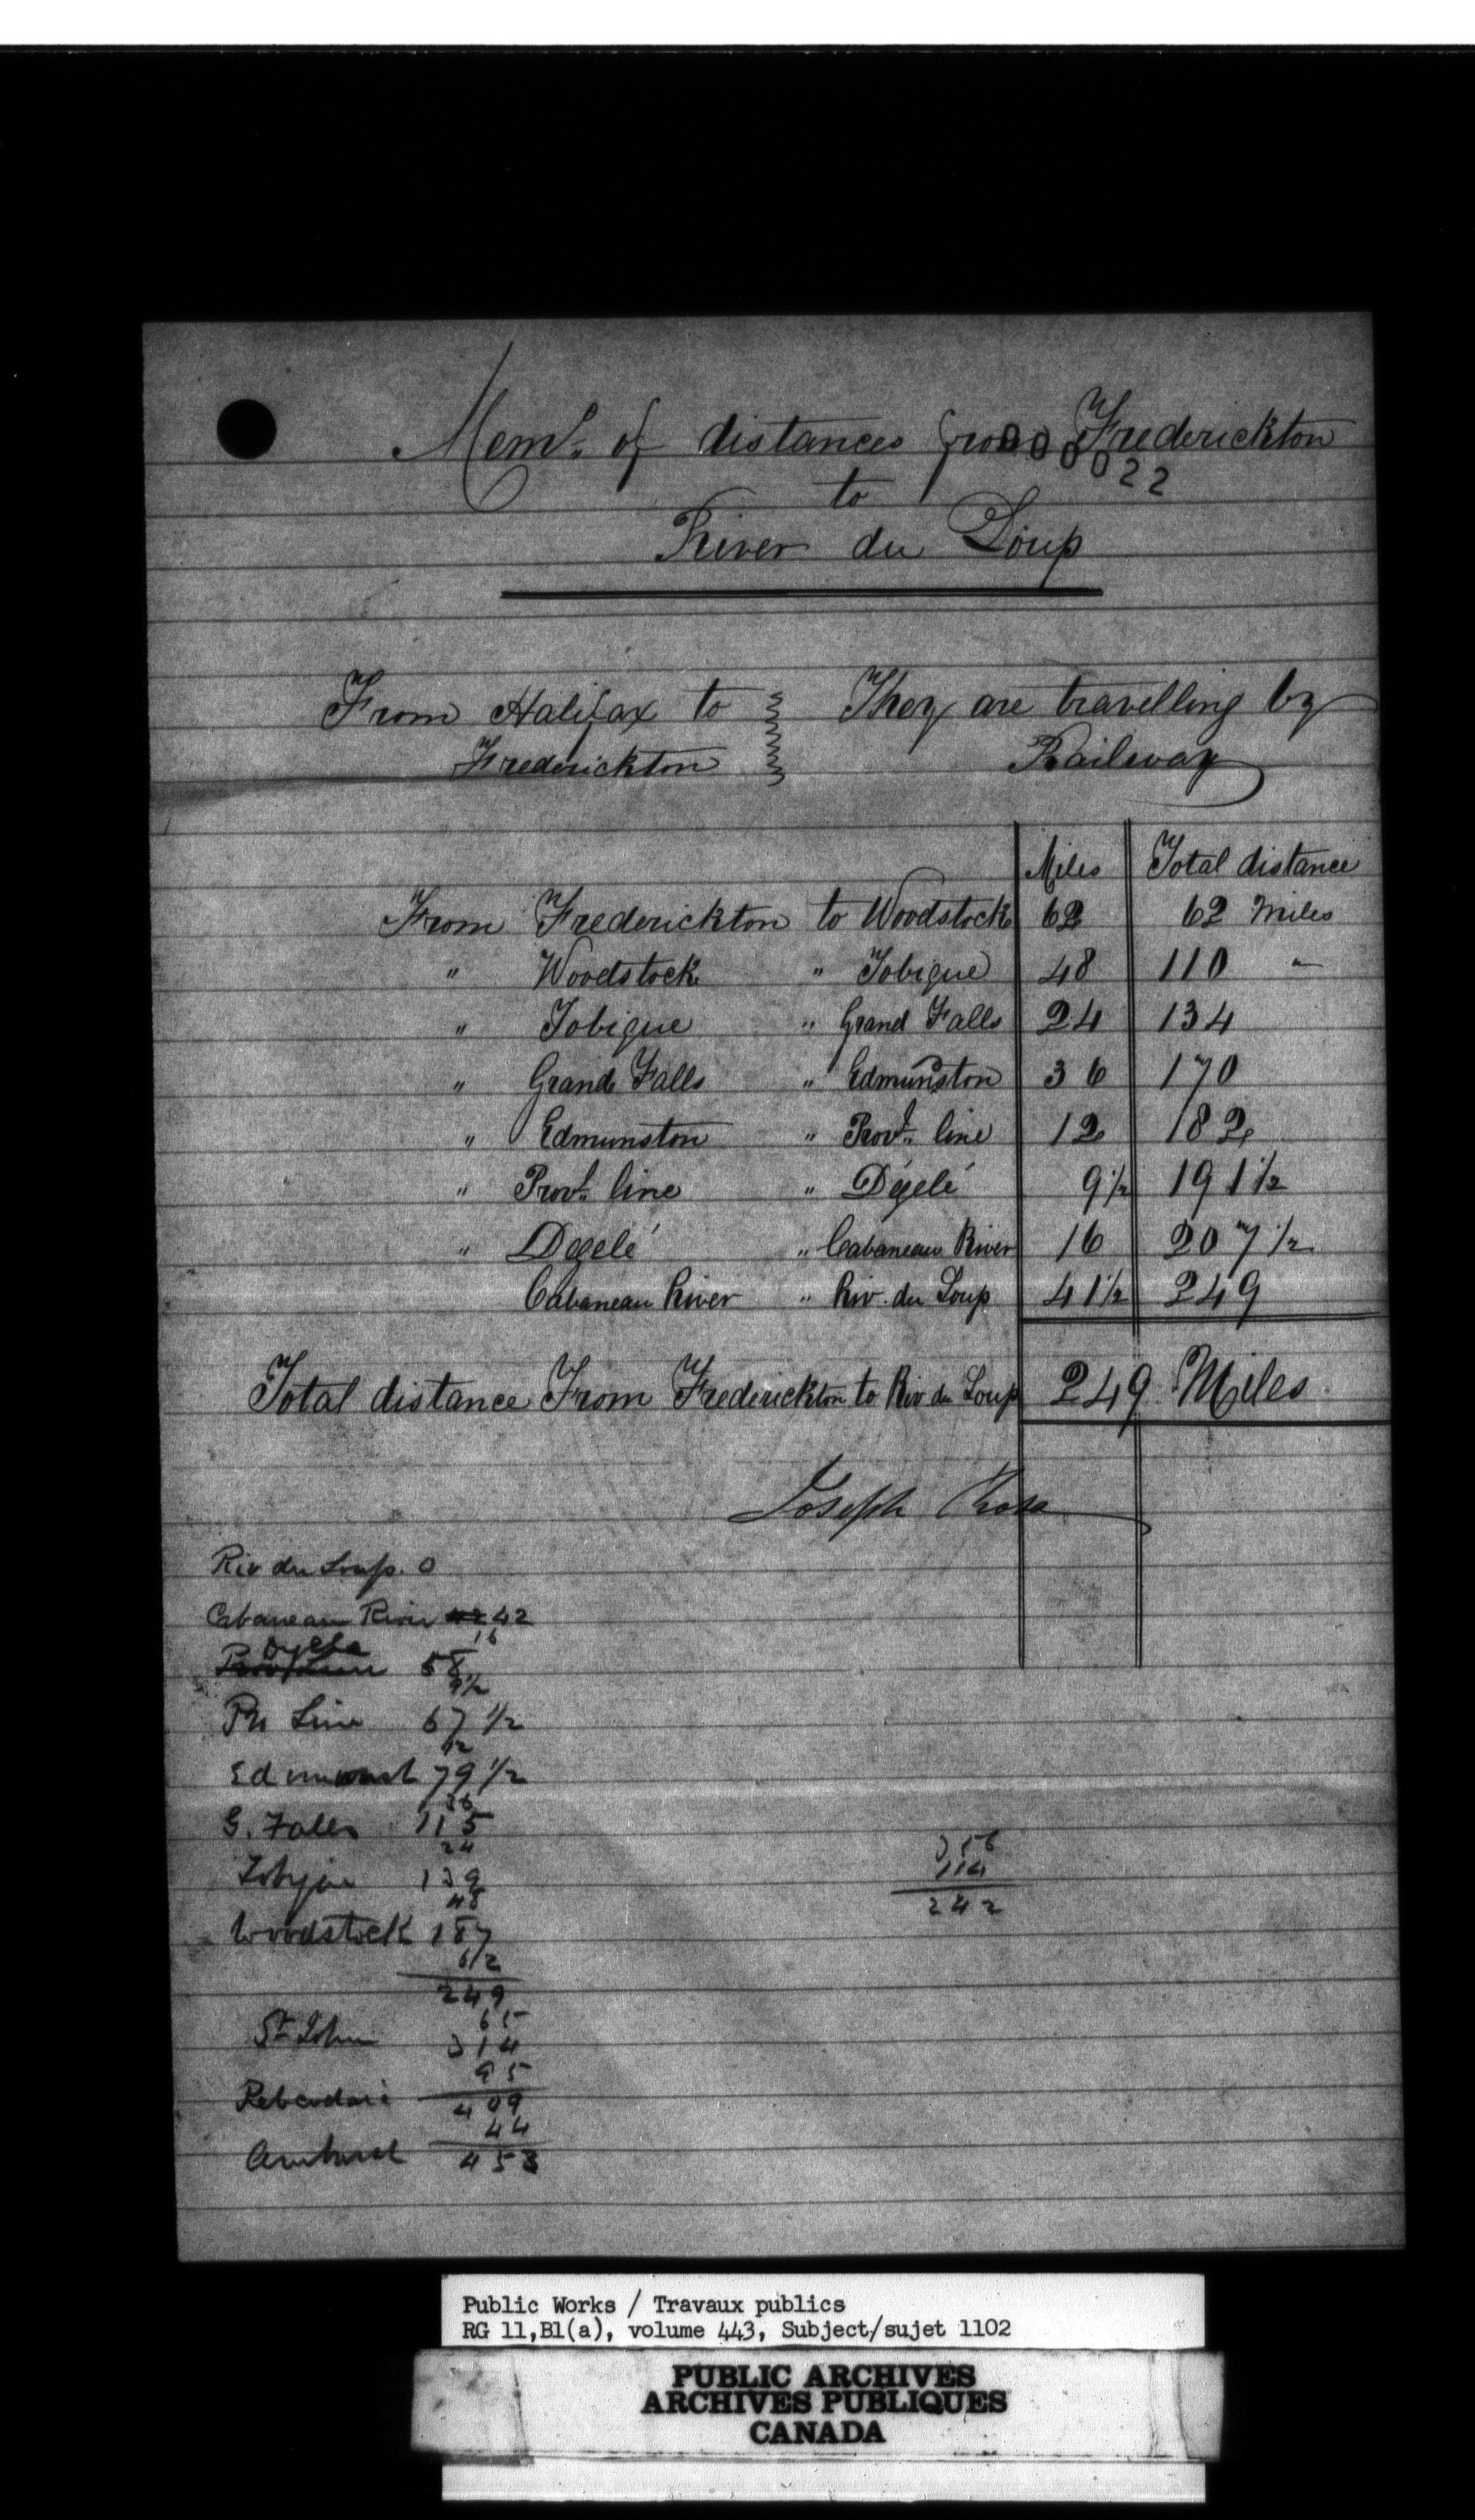 Memo. of distances from Frederickton
000022
to
River du Loup
From Halifax to
Frederickton
They are travelling by
Railway
Miles Total distance
From Frederickton to Woodstock 62 62 Miles
" Woodstock " Tobique 48 110 "
" Tobique " Grand Falls 24 134
" Grand Falls " Edmunston 36 170
" Edmunston " Provl. line 12 182
" Provl. line " Dégelé 9 1/2 191 1/2
" Degelé " Cabaneau River 16 207 1/2
Cabaneau River " Riv. du Loup 41 1/2 249
Total distance From Frederickton to Riv du Loup 249 Miles
Joseph
Riv du Loup. 0
Cabaneau River 42
16
Degele 58
9 1/2
Pr Line 67 1/2
12
Edmunst 79 1/2
36
G. Falls 115
24
Tobique 139
48
Woodstock 187
62
249
65
St John 314
95
409
44
Amherst 453
356
114
242
Public Works / Travaux publics
RG 11,B1(a), volume 443, Subject/sujet 1102
PUBLIC ARCHIVES
ARCHIVES PUBLIQUES
CANADA